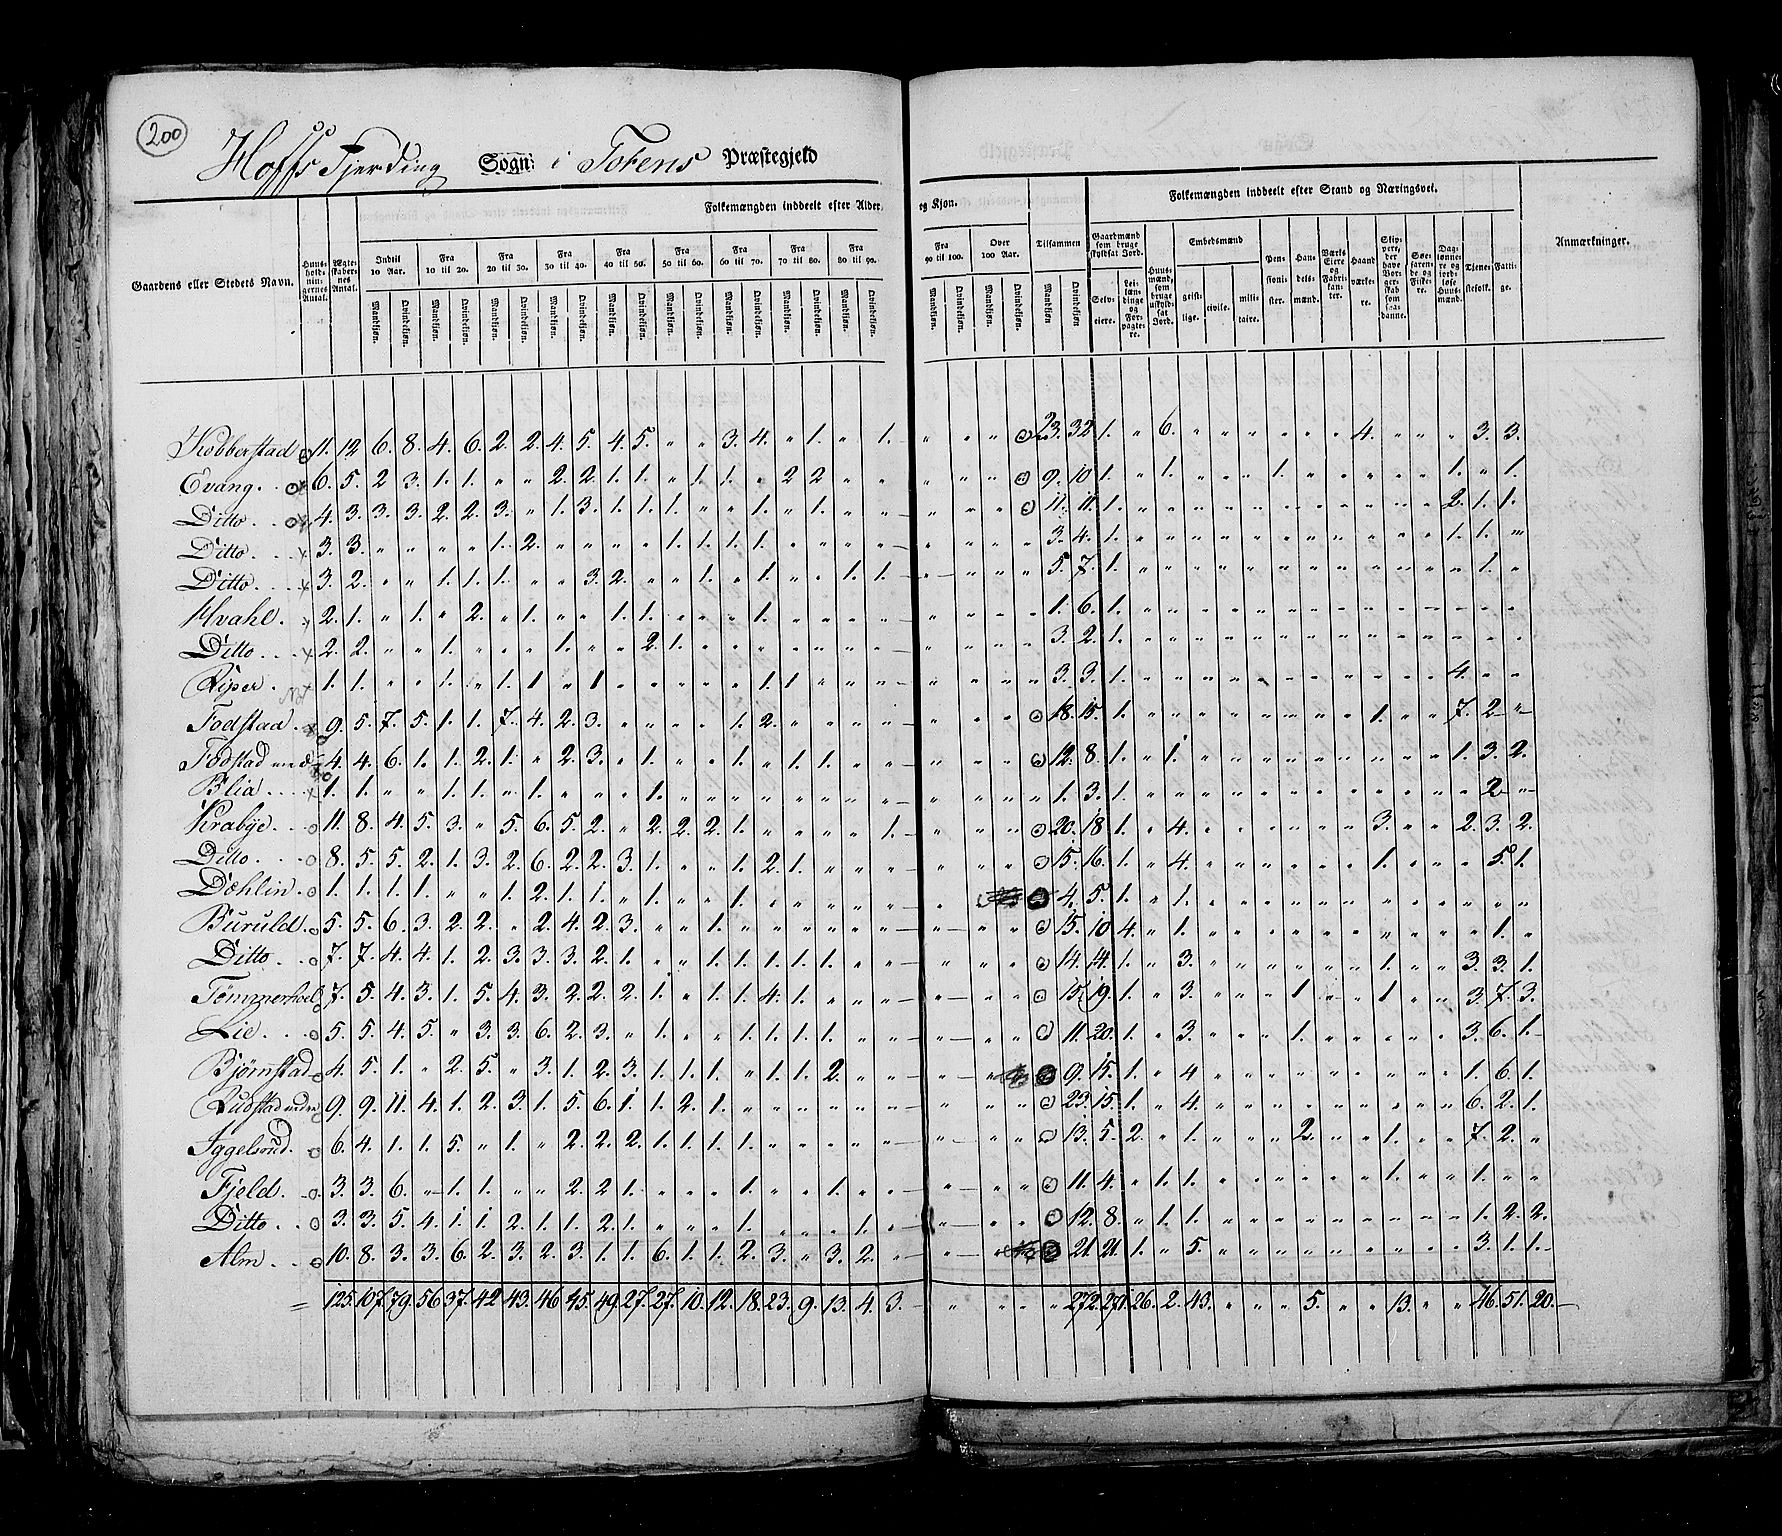 200
Hoffs Fjerding Sogn i Totens Præstegjeld
Folkemængden inddeelt efter Alder og Kjøn.
Folkemængden inddeelt efter Stand og Næringsvei.
Gaardens eller Stedets Navn.
Huus-holdningernes Antal.
Ægteskabernes Antal.
Indtil 10 Aar. Fra 10 til 20. Fra 20 til 30. Fra 30 til 40. Fra 40 til 50. Fra 50 til 60. Fra 60 til 70. Fra 70 til 80. Fra 80 til 90. Fra 90 til 100. Over 100 Aar. Tilsammen
Mandkjøn. Qvindekjøn.
Gaardmænd som bruge skyldsat Jord. Selveiere. Leilændinge og Forpagtere.
Huusmænd, som bruge uskyldsat Jord.
Embedsmænd geistlige. civile. militaire.
Pensionister.
Handelsmænd.
Værks Eiere og Fabrikanter.
Haandværkere.
Søefarende og Fiskere.
Tjenestefolk.
Fattige.
Anmærkninger.
Kobberstad 11. 12 6. 8. 4. 6. 2. 2. 4. 5. 4. 5. " " 3. 4. " 1. " 1. " " " 23. 32 1. " 6. " " " " " " 4. " " " 3. 3.
Evang. 6. 5. 2 3. 1. 1. " " 2. 2. 1. 1. " 1. 1. " 2 2. " " " " " 9. 10 1. " 1. " " " 1. " " " " " 1. " 1.
Ditto. 4. 3. 3. 3. 2. 2. 3. " 1. 3. 1. 1. 1. " " 1. " 1. " " " " " 11. 11. 1. " " " " " " " " " " " 2. 1. 1.
Ditto. 3. 3. " " " " 1. 2. " " " " 1. 1. 1. 1. " " " " " " " 3. 4. 1. " " " " " " " " " " " 1. 1. "
Ditto. 3. 2. " " 1. 1. 1. " " 3. 2. " " 1. " 1. " " 1. 1. " " " 5. 7. 1. " " " " " " " " " " " " 1. "
Hvahl. 2. 1. " 1. " 2. " 1. " " 1. 1. " " " 1. " " " " " " " 1. 6. 1. " " " " " " " " " " " " " "
Ditto. 2. 2. " " 1. " " " 1. " " 2. 1. " " " " " " " " " " 3. 2. 1. " " " " " " " " " " " " " "
Riper. 1. 1. " " 1. " 1. 1 " 1 " " " " " 1. 1. " " " " " " 3. 3. 1. " " " " " " " " " " " 4. " "
Fodstad. 9. 5. 7. 5. 1. 1. 7. 4. 2. 3. " " " " 1. 2. " " " " " " " 18. 15. 1. " " " " " " " " 1. " " 7. 2 "
Fodstad 4. 4. 6. 1. 1. 2. 1. " 2. 3. " 1. " " 1. " 1. 1. " " " " " 12. 8. 1. " 1. " " " " " " " " " 1. 3. 2.
Blia. 1. 1. " " 1. 1. " 1. " " " 1. " " " " " " " " " " " 1. 3. 1. " " " " " " " " " " " " 2 "
Krabye. 11. 8. 4. 5. 3. " 5. 6. 5. 2. " 2. 2. 2. 1. " " " " 1. " " " 20. 18 1. " 4. " " " " " " 3. " " 2. 3. 2.
Ditto. 8. 5. 5. 2. 1. 3. 2. 6. 2. 2. 3. 1. " " 1. 2. 1. " " " " " " 15. 16. 1. " 4. " " " " " " 1. " " " 5. 1.
Dæhlin. 1. 1. 1. 1. " " 1. 2. 1. 1. " 1. " " 1. " " " " " " 4. 5. 1. " 1. " " " " " " " " " " " "
Buruld. 5. 5. 6. 3. 2. 2. " 2. 4. 2. 3. " " 1. " " " " " " " " " 15. 10 4. " 1. " " " " " " " " " " 1. "
Ditto. 7. 7. 4. 4. 1. 2. 3. 3. 3. 2. 1. " " 1. 1. 1. 1. 1. " " " " " 14. 14. 1. " 3. " " " " " " 1. " " 3. 3. 1.
Tømmerhoel 7. 5. 4. 3. 1. 5. 4. 3. 2. 2. 2. 1. " 1. 1. 4. 1. " " " " " " 15. 19. 1. " 3. " " " 1. " " 1. " " 3. 7. 3.
Lie. 5. 5. 4. 5. " 3. 3. 6. 2. 3. " 1. " " 1. 1. 1. 1. " " " " " 11. 20. 1. " 3. " " " " 1. " " " " 3. 6. 1.
Bjørnstad 4. 5. 1. " 2. 5. " 3. 1. 2. 3. 1. 1. 1. " 1. 1. 2. " " " " 9. 15. 1. " 4 " " " " " " " " " 1. 6. 1.
Rudstad 9. 9. 11. 4. 1. 2. 3. 1. 5. 6. 1. 1. 2. 1. " " " " " " " " " 23. 15. 1. " 4. " " " " " " " " " 6. 2. 1.
Iggelsrud. 6. 4. 1. 1. 5. " 1. " 2. 2. 2. 1. 1. 1. 1. " " " " " " " " 13. 5. 2. " 1. " " " " 2. " " 1. " " 7. 2. "
Fjeld. 3. 3. 6. " 1. 1. " " 2. 2. 1. " " " 1. " " 1. " " " " " 11. 4. " 1. 1. " " " " " " 1. " " 1. " "
Ditto. 3. 3. 5. 4. 1. 1. 2. 1. 1. 2. 1. " " " 1. " " " 1. " " " " 12. 8. " 1. 1. " " " " " " " " " 1. 2. 2.
Alm. 10. 8. 3. 3. 6. 2. 3. 2. 3. 1. 1. 6. 1. 1. 2. 3. " 3. 2. " " " 21. 21. 1. " 5. " " " " " " " " " 3. 1. 1.
= 125. 107. 79. 56 37. 42 43. 46 45. 49. 27. 27. 10. 12. 18. 23. 9. 13. 4. 3. " " " " 272. 271. 26. 2. 43. " " " 5. " " 13. " " 46. 51. 20.